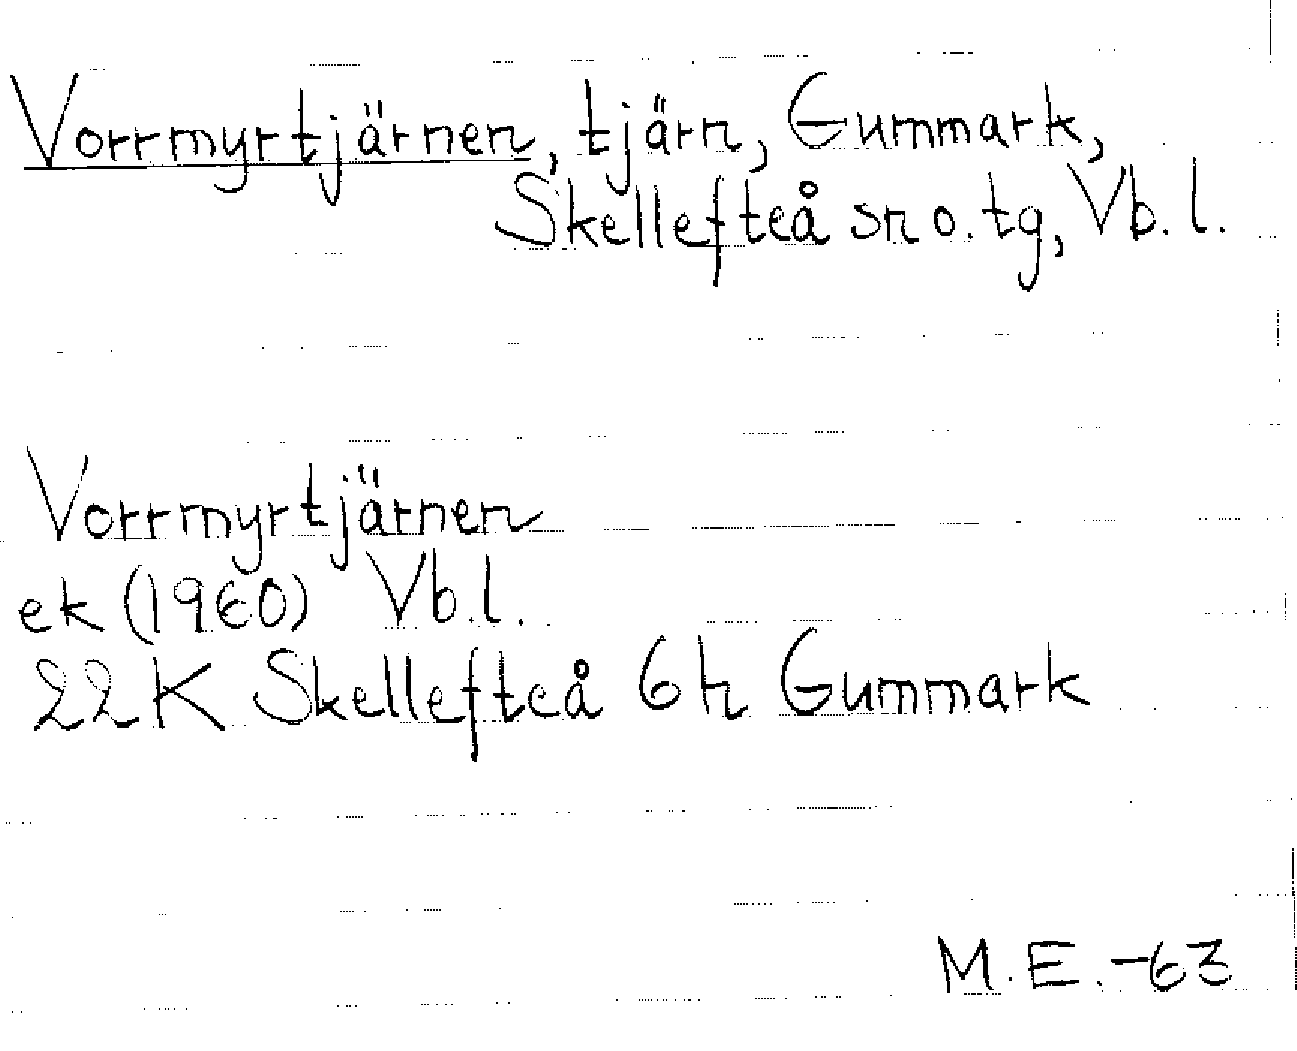 Vorrmyrtjärnen, tjärn, Gummark,
Skellefteå sn o. tg, Vb. l.
Vorrmyrtjärnen
ek (1960) Vb. l.
22K Skellefteå 6h Gummark
M.E.-63